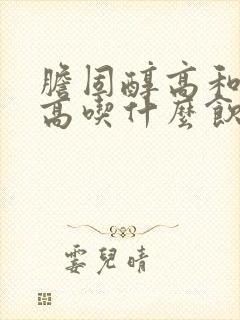 膽固醇高和
高喫什麼飲
霎兒晴